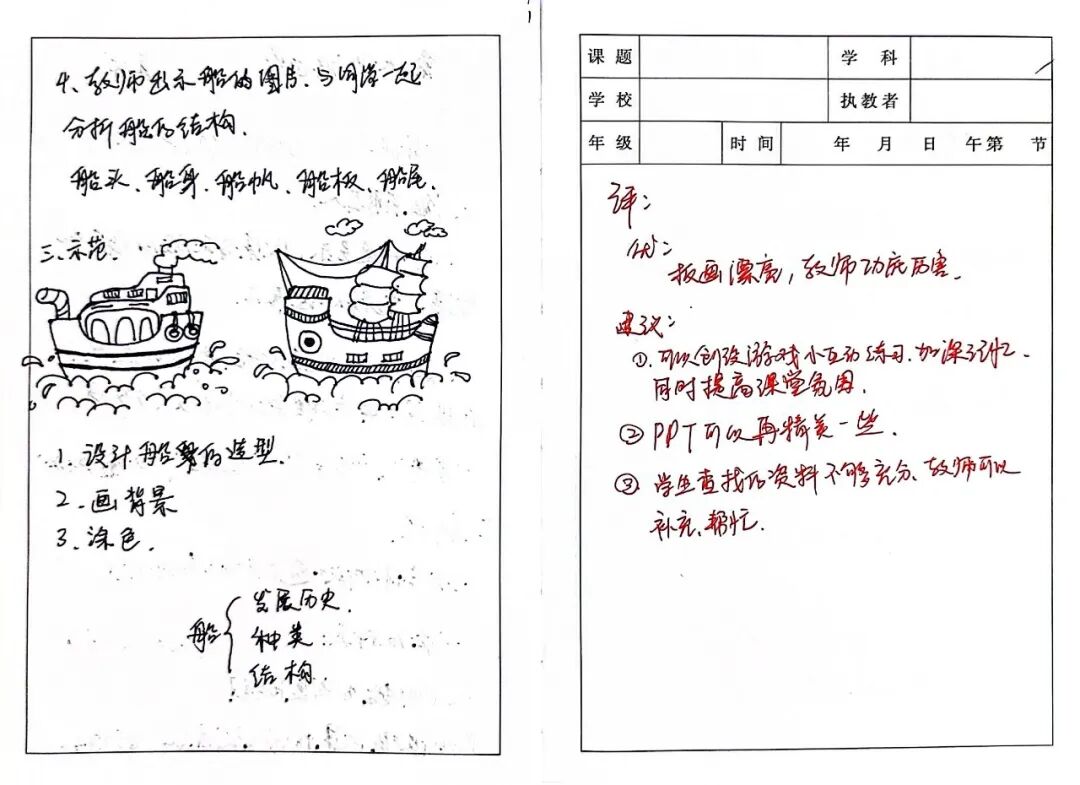 4、教师出示船的图片、与同学一起
分析船的结构.
船头、船身、船帆、船板、船尾.
三.示范.
1. 设计船的造型.
2. 画背景
3. 涂色.
船
发展历史.
种类
结构.
课题 学科
学校 执教者
年级 时间 年 月 日 午第 节
评:
优:
板画漂亮,教师功底厉害.
建议:
① 可以创设游戏小互动练习.加深记忆.
同时提高课堂氛围.
② PPT可以再精美一些.
③ 学生查找的资料不够充分、教师可以
补充、帮忙.